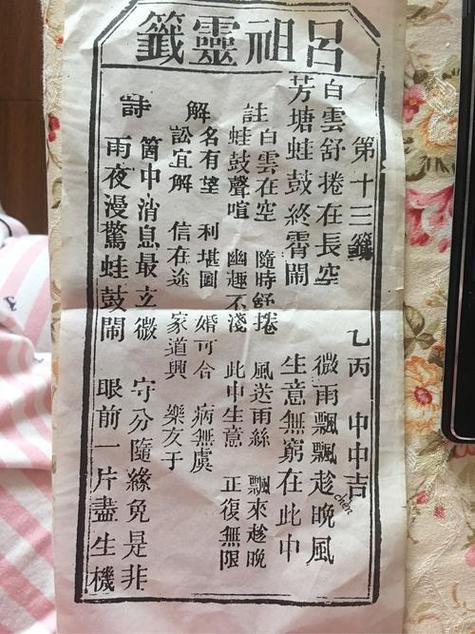 呂祖靈籤
第十三籤 乙丙 中中吉
白雲舒捲在長空 微雨飄飄趁晚風
chèn
芳塘蛙鼓終霄鬧 生意無窮在此中
註 白雲在空 隨時舒捲 風送雨絲 飄來趁晚
蛙鼓聲喧 幽趣不淺 此中生意 正復無限
解 名有望 利堪圖 婚可合 病無虞
訟宜解 信在途 家道興 樂友于
詩 箇中消息最立微 守分隨緣免是非
雨夜漫驚蛙鼓鬧 眼前一片盡生機